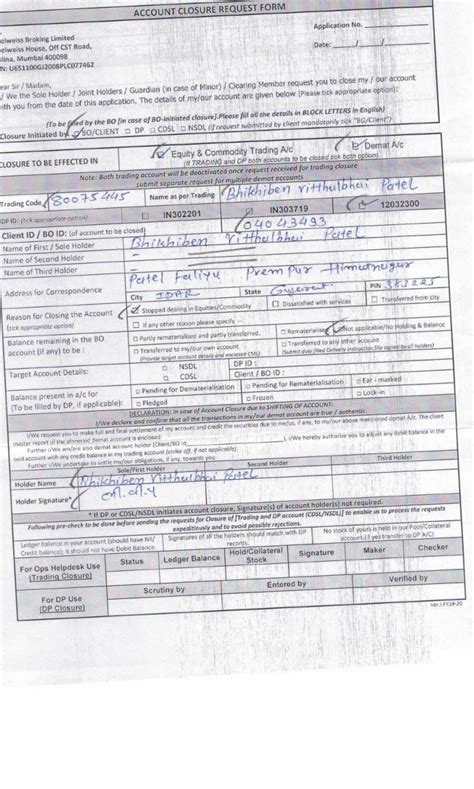 ACCOUNT CLOSURE REQUEST FORM
Application No.
elweiss Broking Limited
elweiss House, Off CST Road,
alina, Mumbai 400098
N: U65110OGJ2008PLC077462
Date:
ear Sir / Madam,
/ We the Sole Holder / Joint Holders / Guardian (in case of Minor) / Clearing Member request you to close my / our account
ith you from the date of this application. The details of my/our account are given below (Please tick appropriate option):
(To be filled by the BO [in case of BO-initiated closure].Please fill all the details in BLOCK LETTERS in English)
Closure Initiated by BO/CLIENT DP CDSL NSDL (If request submitted by client mandatorily tick "BO/Client")
CLOSURE TO BE EFFECTED IN Equity & Commodity Trading A/c Demat A/c
(If TRADING and DP both accounts to be closed tick both option)
Note: Both trading account will be deactivated once request received for trading closure
submit separate request for multiple demat accounts
Trading Code 80075445 Name as per Trading Bhikhiben Vitthulbhai Patel
DP ID: (tick appropriate option) IN302201 IN303719 12032300
Client ID / BO ID: (of account to be closed) 04043493
Name of First / Sole Holder Bhikhiben Vitthulbhai Patel
Name of Second Holder –
Name of Third Holder –
Address for Correspondence Patel Faliyu Prempur Himutnagur
City IDAR State Gujerat PIN 383225
Reason for Closing the Account
(tick appropriate option)
Stopped dealing in Equities/Commodity Dissatisfied with services Transferred from city
If any other reason please specify
Balance remaining in the BO
account (if any) to be:
Partly rematerialised and partly transferred. Rematerialised Not applicable/No Holding & Balance
Transferred to my/our own account Transferred to any other account
(Provide target account details and enclosed CML) (Submit duly filled Delivery Instruction file signed by all holders)
Target Account Details: NSDL DP ID :
CDSL Client / BO ID :
Balance present in a/c for
(To be filled by DP, if applicable):
Pending for Dematerialisation Pending for Rematerialisation Ear - marked
Pledged Frozen Lock-in
DECLARATION: In case of Account Closure due to SHIFTING OF ACCOUNT:
I/We declare and confirm that all the transactions in my/our demat account are true / authentic.
I/We request you to make full and final settlement of my account and credit the securities due to me/us, if any, to my/our above mentioned demat A/c. The client
master report of the aforesaid demat account is enclosed.
Further I/We am/are also demat account holder [Client/BO Id ], I/We hereby authorise you to adjust any debit balance in the
said account with any credit balance in my trading account (strike off, if not applicable)
Further I/We undertake to settle my/our obligations, if any, towards you.
Sole/First Holder Second Holder Third Holder
Holder Name Bhikhiben Vitthulbhai Patel
Holder Signature*
* If DP or CDSL/NSDL initiates account closure, Signature(s) of account holder(s) not required.
Following pre-check to be done before sending the requests for Closure of [Trading and DP account (CDSL/NSDL)] to enable us to process the requests
expeditiously and to avoid possible rejections.
Ledger Balance in your account (should have Nil/
Credit balance); it should not have Debit Balance.
Signatures of all the holders should match with DP
records.
No stock of yours is held in our Pool/Collateral
account.(if yes transfer to DP A/C)
For Ops Helpdesk Use
(Trading Closure)
Status Ledger Balance Hold/Collateral
Stock Signature Maker Checker
For DP Use
(DP Closure)
Scrutiny by Entered by Verified by
Ver.I FY19-20